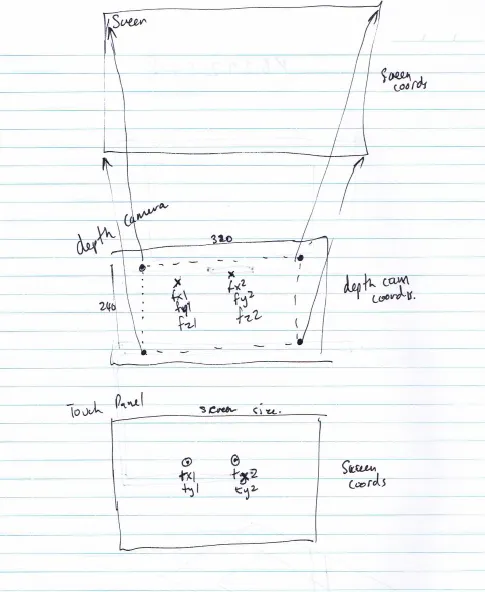 Screen
Screen
coords
depth camera
320
240
fx1
fy1
fz1
fx2
fy2
fz2
depth cam
coords.
Touch Panel
screen size.
tx1
ty1
tx2
ty2
Screen
coords